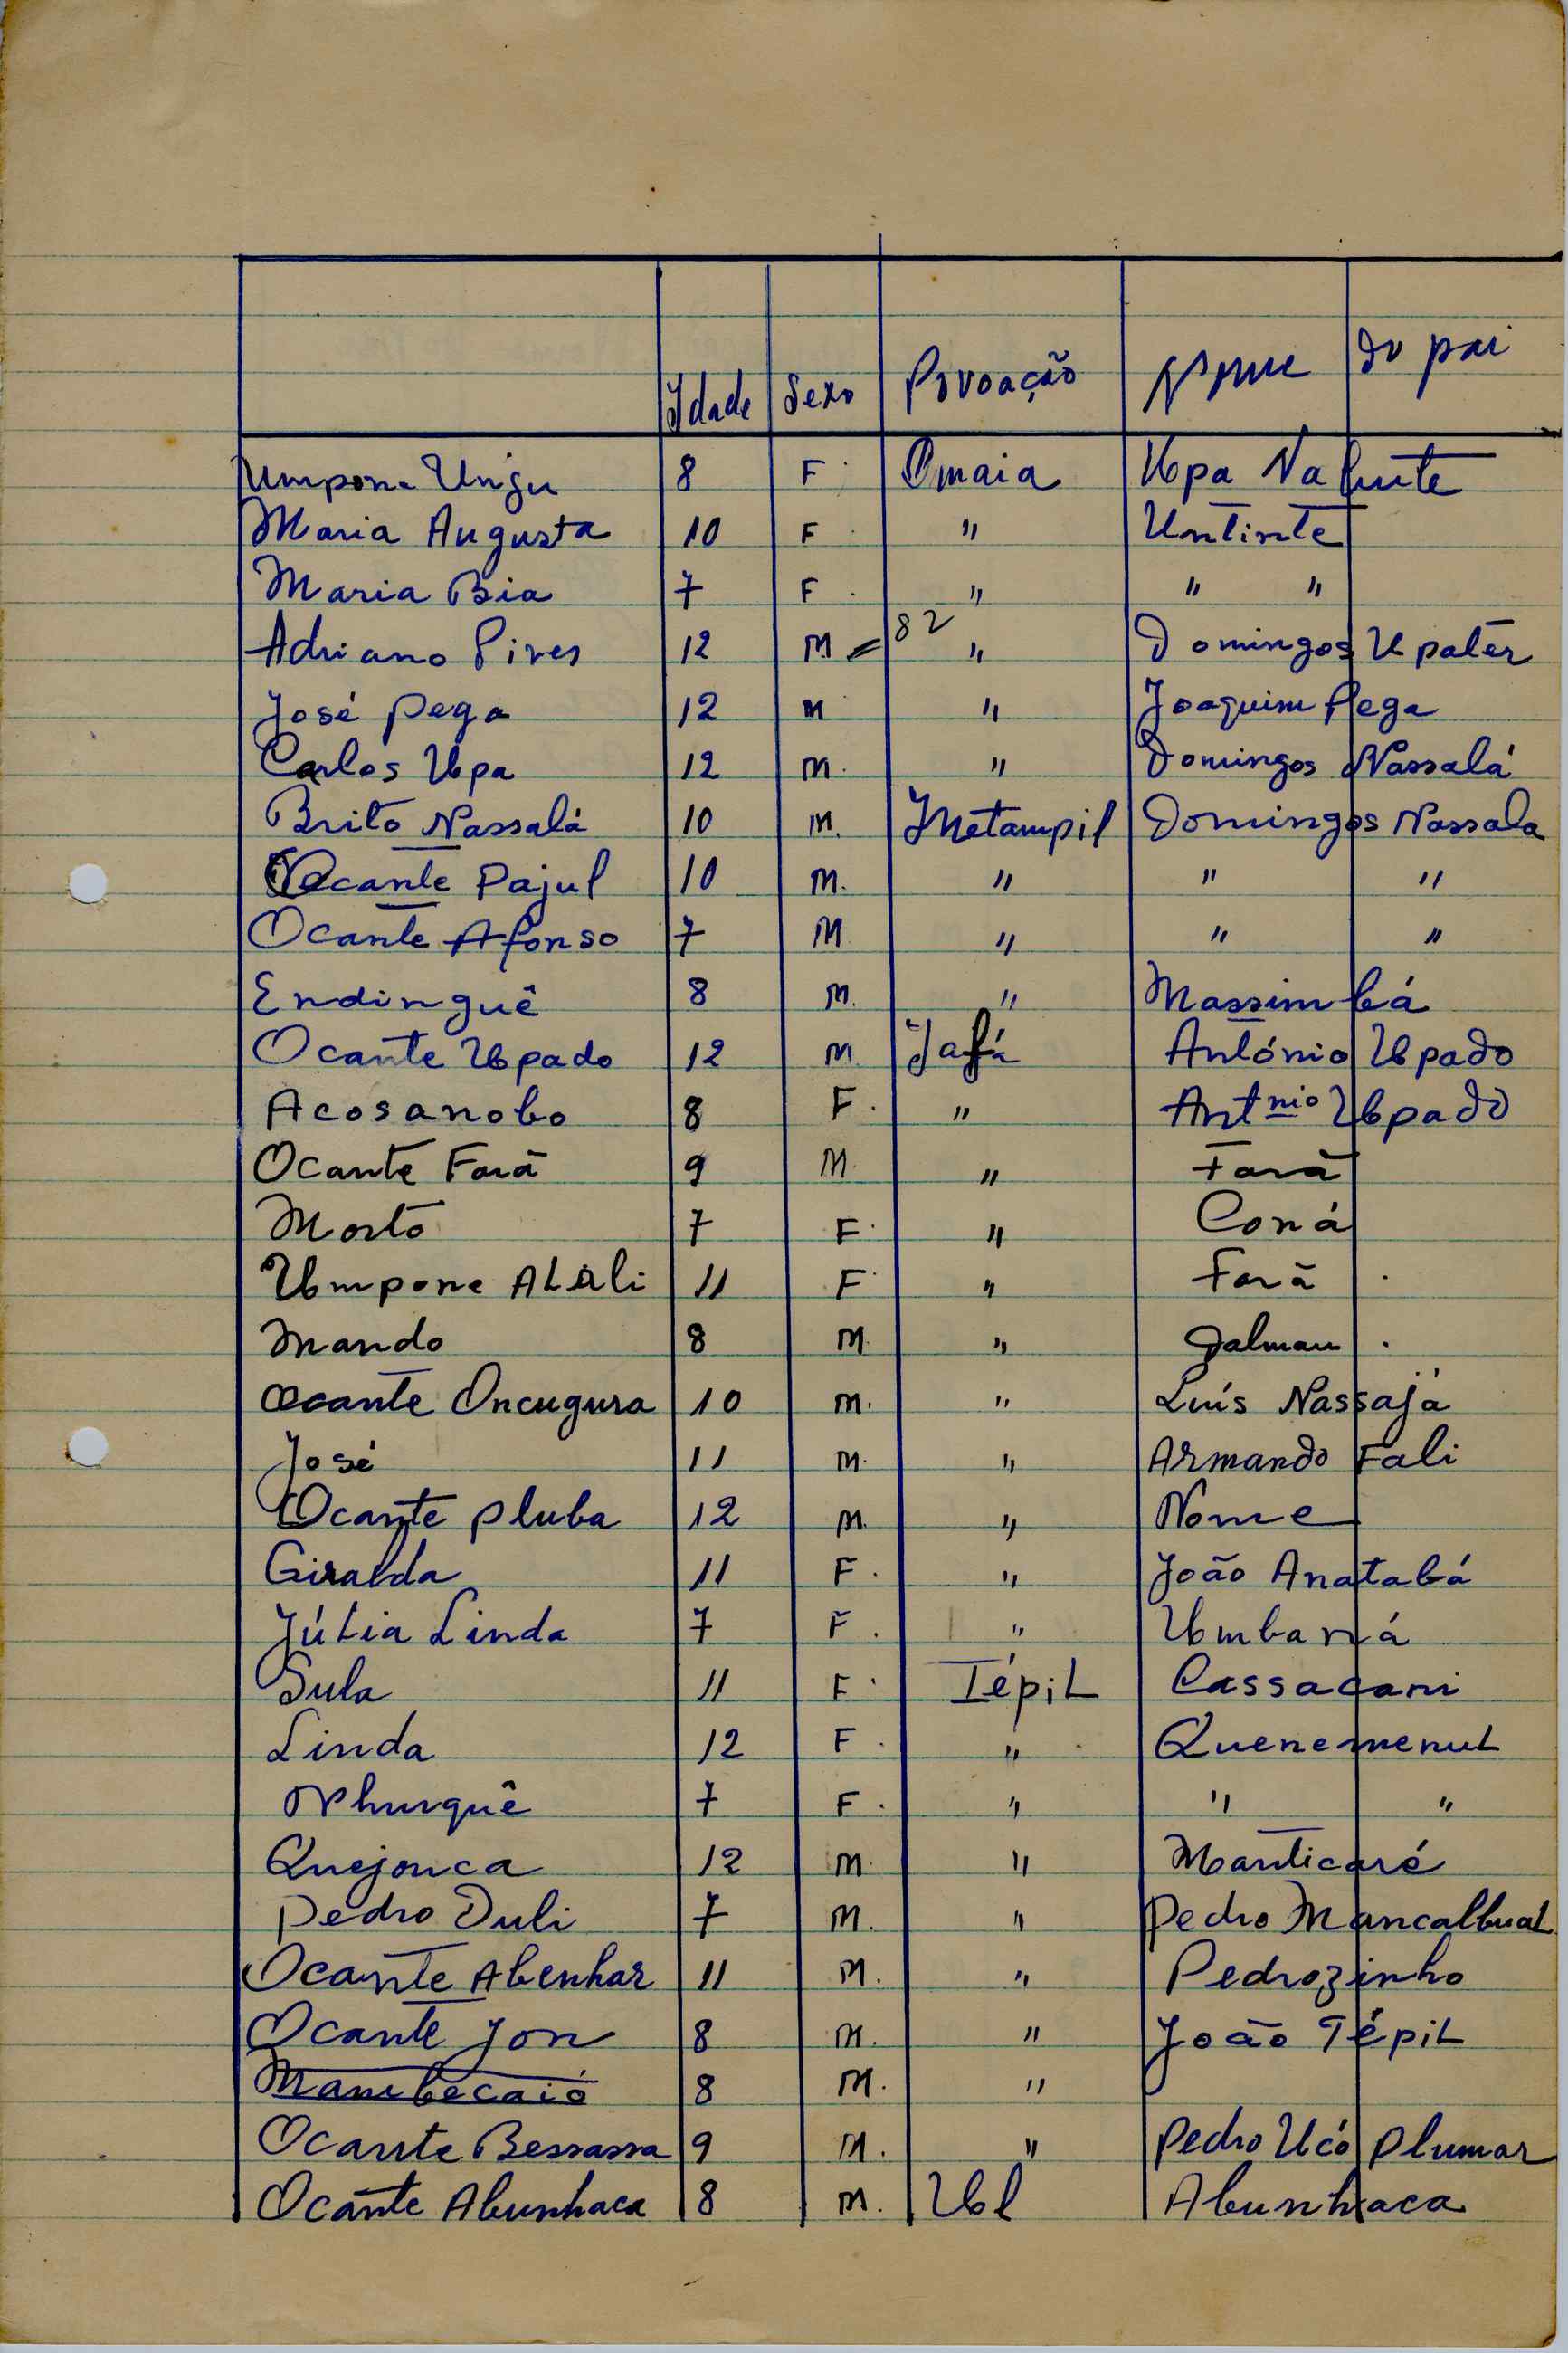 Idade Sexo Povoação Nome do pai
Umpone Ungu 8 F. Omaia Upa Nafunte
Maria Augusta 10 F. " Untinte
Maria Bia 7 F. " " "
82
Adriano Pires 12 M = " Domingos Upater
José Pega 12 M " Joaquim Pega
Carlos Upa 12 M. " Domingos Nassalá
Brito Nassalá 10 M. Metampil Domingos Nassala
Ocante Pajul 10 M. " " "
Ocante Afonso 7 M " " "
Endinguê 8 M. " Massimbá
Ocante Upado 12 M Jafá António Upado
Acosanobo 8 F. " Antnio Upado
Ocante Farã 9 M. " Farã
Morto 7 F. " Coná
Umpone Alali 11 F. " Farã .
Mando 8 M " Dalmau .
Ocante Oncugura 10 M. " Luís Nassajá
José 11 M. " Armando Fali
Ocante Pluba 12 M. " Nome
Giralda 11 F. " João Anatabá
Júlia Linda 7 F. " Umbaná
Sula 11 F. Tépil Cassacani
Linda 12 F. " Quenemenul
Nhurquê 7 F. " " "
Quejonca 12 M " Manticaré
Pedro Duli 7 M. " Pedro Mancalbual
Ocante Abenhar 11 M. " Pedrozinho
Ocante Jon 8 M. " João Tépil
Mambecaió 8 M. "
Ocante Bessassa 9 M. " Pedro Ucó Plumar
Ocante Abunhaca 8 M. Ubl Abunhaca